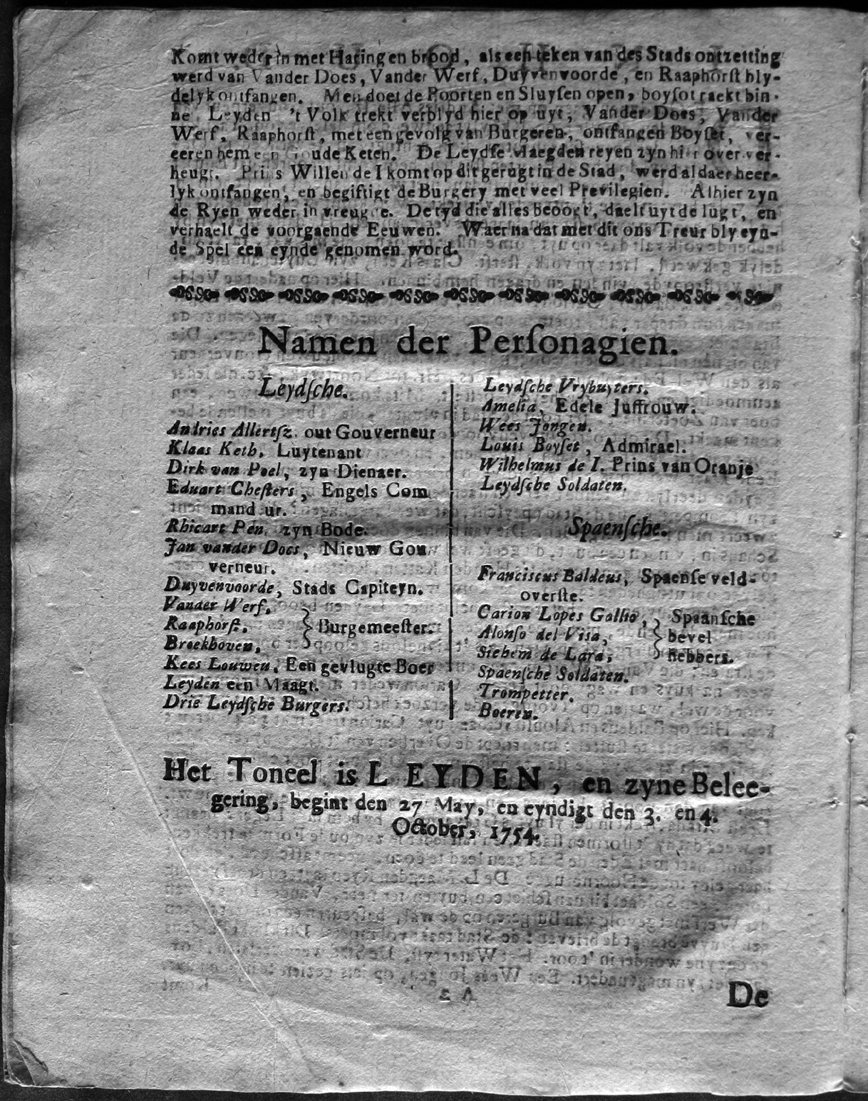 Komt weder in met Haring en brood, als een teken van des Stads ontzetting
werd van Vander Does, Vander Werf, Duyvenvoorde, en Raaphorſt bly-
delyk ontfangen. Men doet de Poorten en Sluyſen open, boyſot raekt bin-
ne Leyden 't Volk trekt verblyd hier op uyt, Vander Does, Vander
Werf, Raaphorſt, met een gevolg van Burgeren, ontfangen Boyſet, ver-
eeren hem een Goude Keten. De Leydſe Maegden reyen zyn hier over ver-
heugt. Prins Willem de I komt op dit gerugt in de Stad, werd aldaer heer-
lyk ontfangen, en begiftigt de Burgery met veel Previlegien. Alhier zyn
de Ryen weder in vreugde. De tyd die alles beoogt, daelt uyt de lugt, en
verhaelt de voorgaende Eeuwen. Waer na dat met dit ons Treur bly eyn-
de Spel een eynde genomen word.
Namen der Perſonagien.
Leydſche.
Andries Allertſz. out Gouverneur
Klaas Keth, Luytenant
Dirk van Poel, zyn Dienaer.
Eduart Cheſters, Engels Com
mand ur.
Rhicart Pen, zyn Bode.
Jan vander Does, Nieuw Gou
verneur.
Duyvenvoorde, Stads Capiteyn.
Vander Werf,
Raaphorſt, Burgemeeſter.
Broekhoven,
Kees Louwen, Een gevlugte Boer
Leyden een Maagt.
Drie Leydſche Burgers.
Leydſche Vrybuyters.
Amelia, Edele Juffrouw.
Wees Jongen.
Louis Boyſet, Admirael.
Wilhelmus de I. Prins van Oranje
Leydſche Soldaten.
Spaenſche.
Franciscus Baldeus, Spaenſe veld-
overſte.
Carion Lopes Gallio, Spaanſche
Alonſo del Viſa, bevel
Siehem de Lara, hebbers.
Spaenſche Soldaten.
Trompetter.
Boeren.
Het Toneel is LEYDEN, en zyne Belee-
gering, begint den 27 May, en eyndigt den 3. en 4.
October, 1754.
De